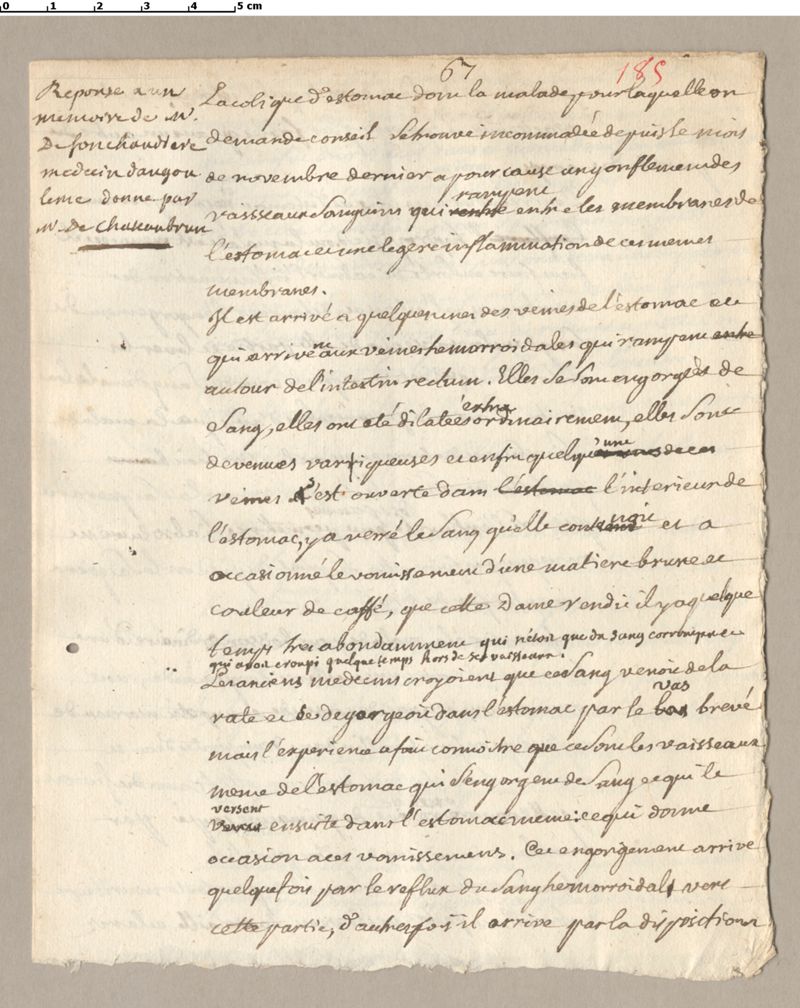 0 1 2 3 4 5 cm
67
185
Reponse a un
memoire de Mr.
De fonchaudiere
medecin d'angou
leme donne par
Mr. De Chasaubrun
La colique d'estomac dont la malade pour laquelle on
demande conseil Se trouve incommodée depuis le mois
de novembre dernier a pour cause un gonflement des
rampent
vaissseaux Sanguins qui rentre entre les membranes de
l'estomac et une legere inflammation de ces memes
membranes.
Il est arrivé a quelques unes des veines de l'estomac ce
qui arrive aux veines hemorroidales qui rampent entre
autour de l'intestin rectum. Elles Se Sont engorgées de
Sang, elles ont eté dilatées extraordinairement, elles Sont
une
devenues variqueuses et enfin quelqu' unes de ces
veines S'est ouverte dans l'estomac l'interieur de
l'estomac, y a versé le Sang qu'elle contenoit et a
occasionné le vomissement d'une matiere brune et
couleur de caffé, que cette Dame rendit il y a quelque
temps tres abondamment qui n'etoit que du Sang corrompu et
qui avoit croupi quelque temps hors de Ses vaisseaux.
Les anciens medecins croyoient que ce Sang venoit de la
vas
rate et Se degorgeoit dans l'estomac par le bas brevé
mais l'experience a fait connoitre que ce Sont les vaisseaux
meme de l'estomac qui S'engorgent de Sang et qui le
versent
ensuite dans l'estomac meme: ce qui donne
occasion a ces vomissemens. Cet engorgement arrive
quelquefois par le reflux du Sang hemorroidal vers
cette partie, d'autres fois il arrive par la disposition